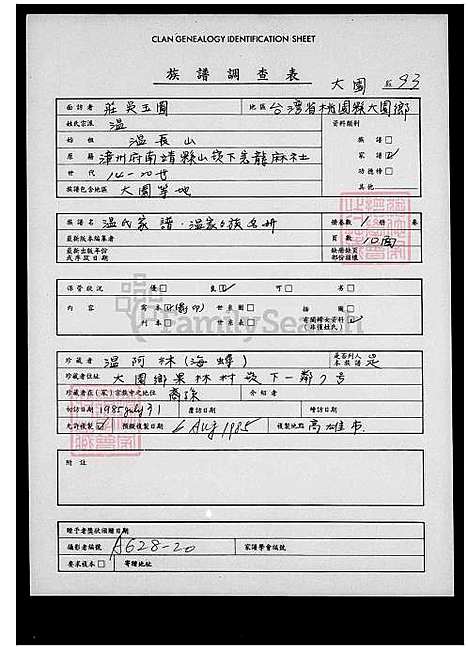 CLAN GENEALOGY IDENTIFICATION SHEET
族譜調查表
大園 93
面訪者 莊吳玉圓 地區 台灣省桃園縣大園鄉
姓氏宗派 溫 資料類別
始祖 溫長山 族譜□
原籍 漳州府南靖縣山崁下 龍麻社 家譜☑
世代 14-20世 功德榜□
族譜包含地區 大園等地 其他
族譜名 溫氏家譜·溫家 族名冊 1冊
最新版本編纂者 頁數 10面
最新出版年份或序說日期
保管狀況 優□ 良☑ 可□ 劣□
內容 寫本☑(影印) 世系圖□ 插圖□
刊本□ 世系表□ 有關婦女資料(非僅姓氏)
FamilySearch
珍藏者 溫阿林(海蟳) 是否列入本族譜 是
珍藏者住址 大園鄉果林村崁下一鄰7號
珍藏者在(家)宗族中之地位 裔孫 介紹者
初訪日期 1985 July 31 應訪日期 續訪日期
允許複製☑ 預擬複製日期 6 Aug 1985 複製地點 高雄市
附註
贈予者獎狀頒贈日期
攝影者編號 A628-20 家譜學會編號
要求複本□ 寄贈地址